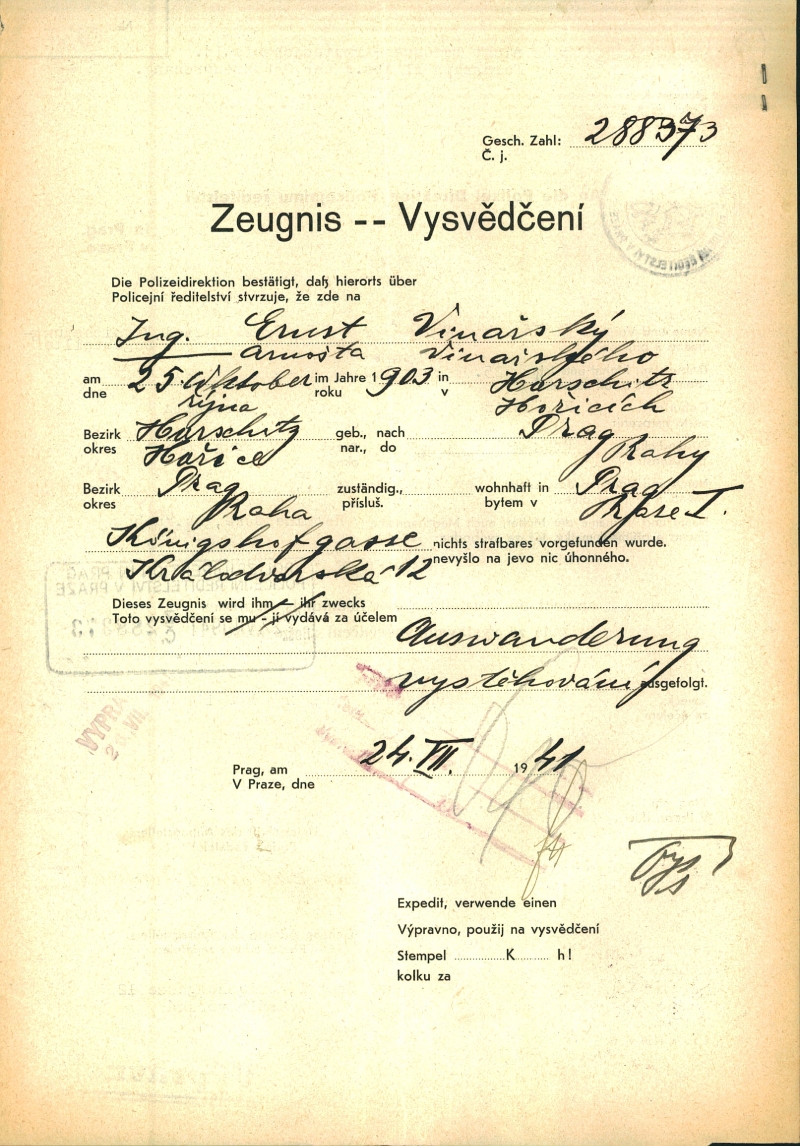 Gesch. Zahl: 288373
Č. j.
Zeugnis -- Vysvědčení
Die Polizeidirektion bestätigt, daß hierorts über
Policejní ředitelství stvrzuje, že zde na
Ing. Ernst Vinařský
Arnošta Vinařského
am 25. Oktober im Jahre 1903 in Horschitz
dne října roku v Hořicích
Bezirk Horschitz geb., nach Prag
okres Hořice nar., do Prahy
Bezirk Prag zuständig., wohnhaft in Prag
okres Praha přísluš. bytem v Praze I.
Königshofgasse nichts strafbares vorgefunden wurde.
Králodvorská 12 nevyšlo na jevo nic úhonného.
Dieses Zeugnis wird ihm - ihr zwecks
Toto vysvědčení se mu - jí vydává za účelem
Auswanderung
vystěhování ausgefolgt.
Prag, am 24. VII. 1941
V Praze, dne
Expedit, verwende einen
Výpravno, použij na vysvědčení
Stempel K h!
kolku za